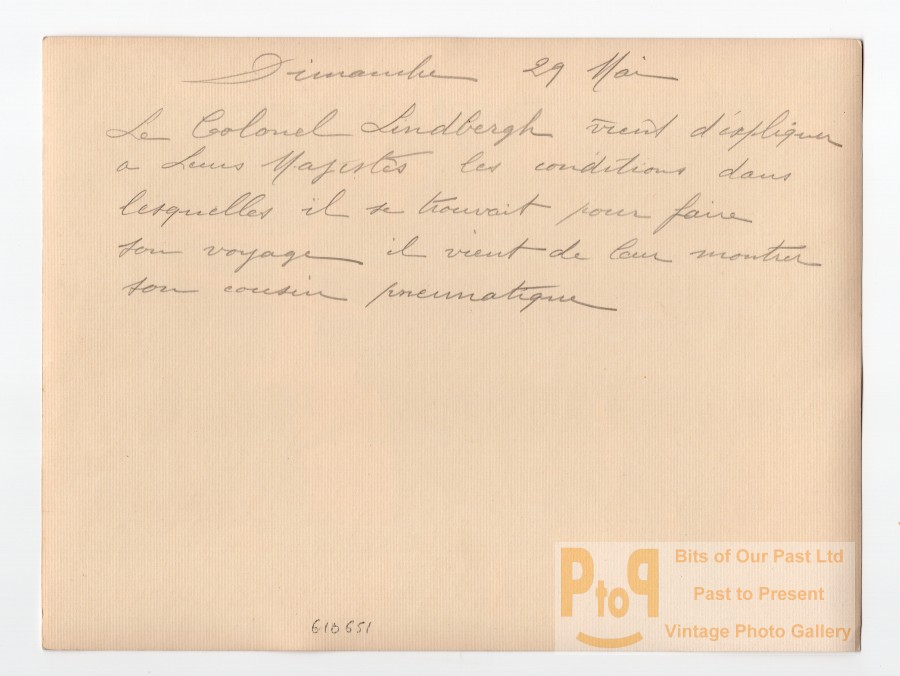 Dimanche 29 Mai
Le Colonel Lindbergh vient d'expliquer
a Leurs Majestés les conditions dans
lesquelles il se trouvait pour faire
son voyage il vient de leur montrer
son cousin pneumatique
610651
PtoP
Bits of Our Past Ltd
Past to Present
Vintage Photo Gallery